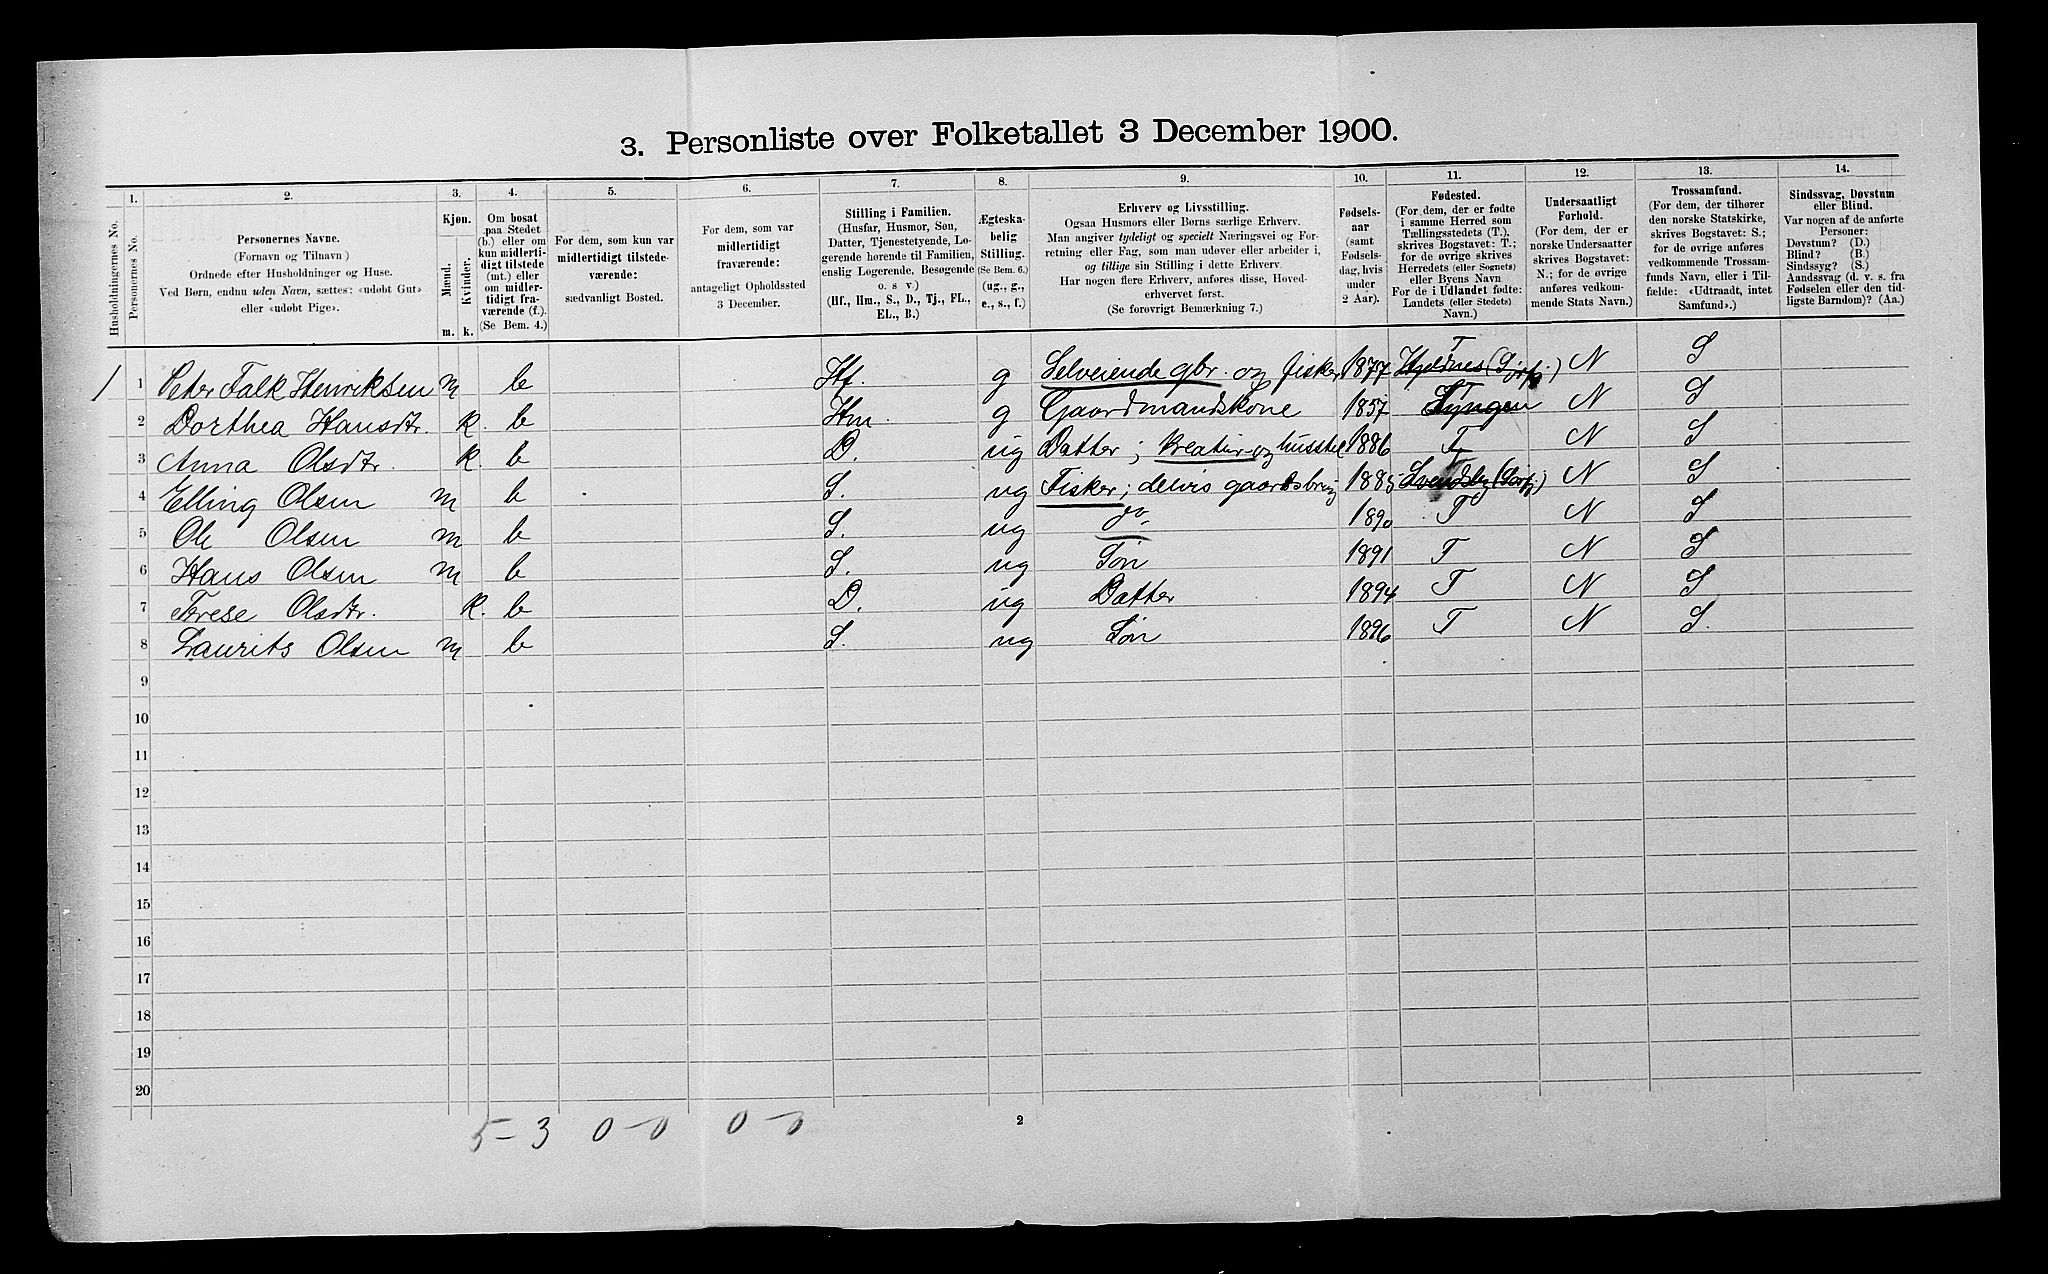 3. Personliste over Folketallet 3 December 1900.
1. 2. 3. 4. 5. 6. 7. 8. 9. 10. 11. 12. 13. 14.
Husholdningernes No.
Personernes No.
Personernes Navne.
(Fornavn og Tilnavn)
Ordnede efter Husholdninger og Huse.
Ved Børn, endnu uden Navn, sættes: «udøbt Gut»
eller «udøbt Pige».
Kjøn.
Mænd. Kvinder.
m. k.
Om bosat
paa Stedet
(b.) eller om
kun midlerti-
digt tilstede
(mt.) eller
om midler-
tidigt fra-
værende (f.).
(Se Bem. 4.)
For dem, som kun var
midlertidigt tilstede-
værende:
sædvanligt Bosted.
For dem, som var
midlertidigt
fraværende:
antageligt Opholdssted
3 December.
Stilling i Familien.
(Husfar, Husmor, Søn,
Datter, Tjenestetyende, Lo-
gerende hørende til Familien,
enslig Logerende, Besøgende
o. s v.)
(Hf., Hm., S., D., Tj., FL.,
EL., B.)
Ægteska-
belig
Stilling.
(Se Bem. 6.)
(ug., g.,
e., s., f.)
Erhverv og Livsstilling.
Ogsaa Husmors eller Børns særlige Erhverv.
Man angiver tydeligt og specielt Næringsvei og For-
retning eller Fag, som man udøver eller arbeider i,
og tillige sin Stilling i dette Erhverv.
Har nogen flere Erhverv, anføres disse, Hoved-
erhvervet først.
(Se forøvrigt Bemærkning 7.)
Fødsels-
aar
(samt
Fødsels-
dag, hvis
under
2 Aar).
Fødested.
(For dem, der er fødte
i samme Herred som
Tællingsstedets (T.),
skrives Bogstavet: T.;
for de øvrige skrives
Herredets (eller Sognets)
eller Byens Navn
For de i Udlandet fødte:
Landets (eller Stedets)
Navn.)
Undersaatligt
Forhold.
(For dem, der er
norske Undersaatter
skrives Bogstavet:
N.; for de øvrige
anføres vedkom-
mende Stats Navn.)
Trossamfund.
(For dem, der tilhører
den norske Statskirke,
skrives Bogstavet: S.;
for de øvrige anføres
vedkommende Trossam-
funds Navn, eller i Til-
fælde: «Udtraadt, intet
Samfund».)
Sindssvag, Døvstum
eller Blind.
Var nogen af de anførte
Personer:
Døvstum? (D.)
Blind? (B.)
Sindssyg? (S.)
Aandssvag (d. v. s. fra
Fødselen eller den tid-
ligste Barndom)? (Aa.)
1 1 Peter Falk Henriksen m b Hf. g Selveiende gbr. og fisker 1877 T N S
2 Dorthea Hansdtr. k. b Hm. g Gaardmandskone 1857 T Lyngen N S
3 Anna Olsdtr. k. b D. ug Datter; kreatur- og husstel 1886 T N S
4 Elling Olsen m b S. ug Fisker; delvis gaardsbrug 1885 T N S
5 Ole Olsen m b S. ug do. 1890 T N S
6 Hans Olsen m b S. ug Søn 1891 T N S
7 Trese Olsdtr. k. b D. ug Datter 1894 T N S
8 Laurits Olsen m b S. ug Søn 1896 T N S.
9
10
11
12
13
14
15
16
17
18
19
20
5-3 0-0 0-0
2